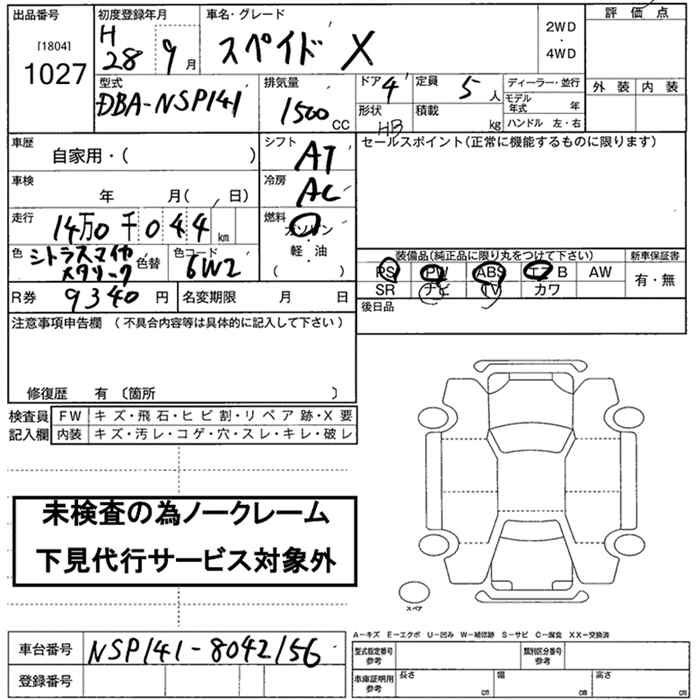 出品番号
[1804]
1027
初度登録年月
H
28 9 月
車名・グレード
スペイド X
2WD
・
4WD
評価点
外装 内装
型式
DBA-NSP141
排気量
1500 CC
ドア 4
形状 HB
定員 5 人
積載 kg
ディーラー・並行
モデル年式 年
ハンドル 左・右
車歴
自家用・( )
シフト AT
セールスポイント(正常に機能するものに限ります)
車検 年 月( 日)
冷房 AC
走行 14万0千044 km
燃料 ガソリン
軽・油
( )
色 シトラスマイカメタリック 色替
色コード 6W2
装備品(純正品に限り丸をつけて下さい)
PS PW ABS エアB AW
SR ナビ TV カワ
新車保証書
有・無
R券 9340 円
名変期限 月 日
後日品
注意事項申告欄 (不具合内容等は具体的に記入して下さい)
修復歴 有 〔箇所 〕
検査員記入欄
FW キズ・飛石・ヒビ割・リペア跡・X要
内装 キズ・汚レ・コゲ・穴・スレ・キレ・破レ
未検査の為ノークレーム
下見代行サービス対象外
スペア
A-キズ E-エクボ U-凹み W-補修跡 S-サビ C-腐食 XX-交換済
車台番号 NSP141-8042156
登録番号
型式指定番号 参考
類別区分番号 参考
車庫証明用 参考
長さ cm
幅 cm
高さ cm